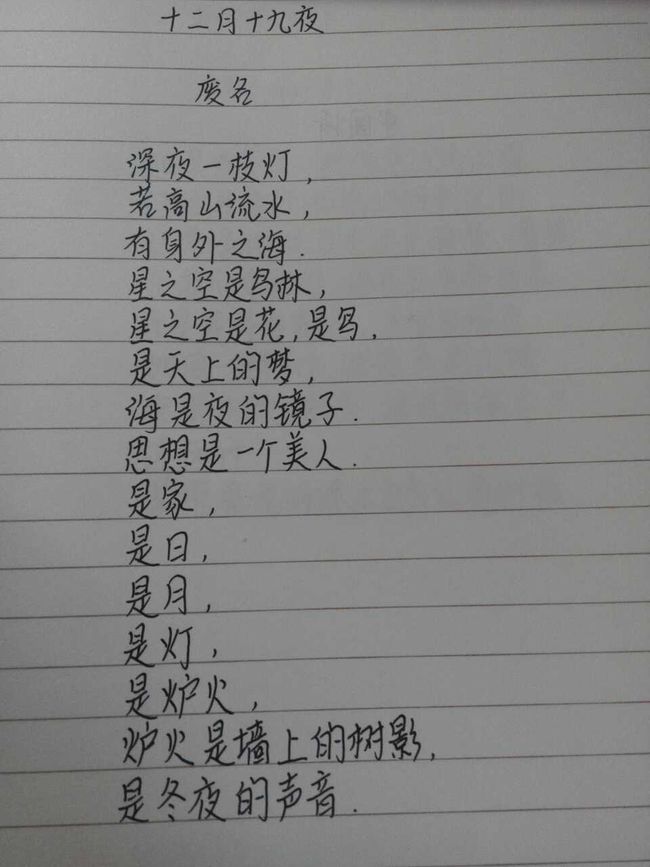 十二月十九夜
废名
深夜一枝灯，
若高山流水，
有身外之海.
星之空是鸟林，
星之空是花，是鸟，
是天上的梦，
海是夜的镜子.
思想是一个美人.
是家，
是日，
是月，
是灯，
是炉火，
炉火是墙上的树影，
是冬夜的声音.